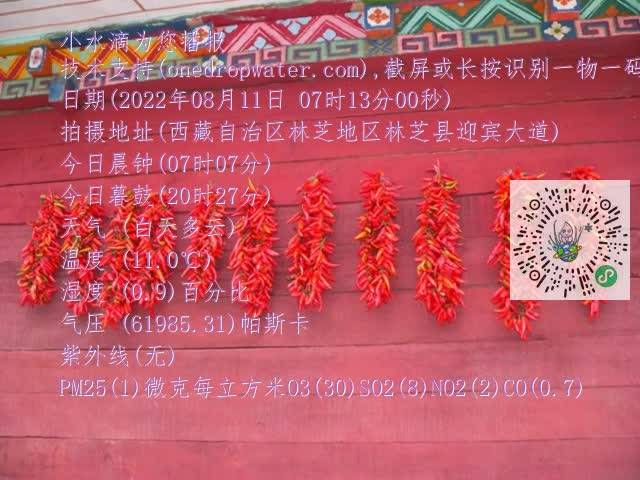 小水滴为您播报
技术支持(onedropwater.com),截屏或长按识别一物一码
日期(2022年08月11日 07时13分00秒)
拍摄地址(西藏自治区林芝地区林芝县迎宾大道)
今日晨钟(07时07分)
今日暮鼓(20时27分)
天气 (白天多云)
温度 (11.0℃)
湿度 (0.9)百分比
气压 (61985.31)帕斯卡
紫外线(无)
PM25(1)微克每立方米O3(30)SO2(8)NO2(2)CO(0.7)